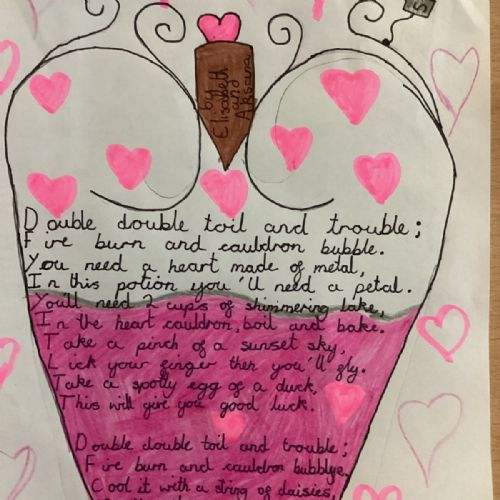 S
by
Elisabeth
and
Aksara
Double double toil and trouble;
Fire burn and cauldron bubble.
You need a heart made of metal,
In this potion you'll need a petal.
You'll need 2 cups of shimmering lake,
In the heart cauldron, boil and bake.
Take a pinch of a sunset sky,
Lick your finger then you'll fly.
Take a spotty egg of a duck,
This will give you good luck.
Double double toil and trouble;
Fire burn and cauldron bubblye,
Cool it with a string of daisies,